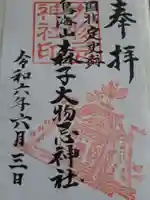 奉拝
国指定史跡
鳥海山森子大物忌神社
令和六年六月三日